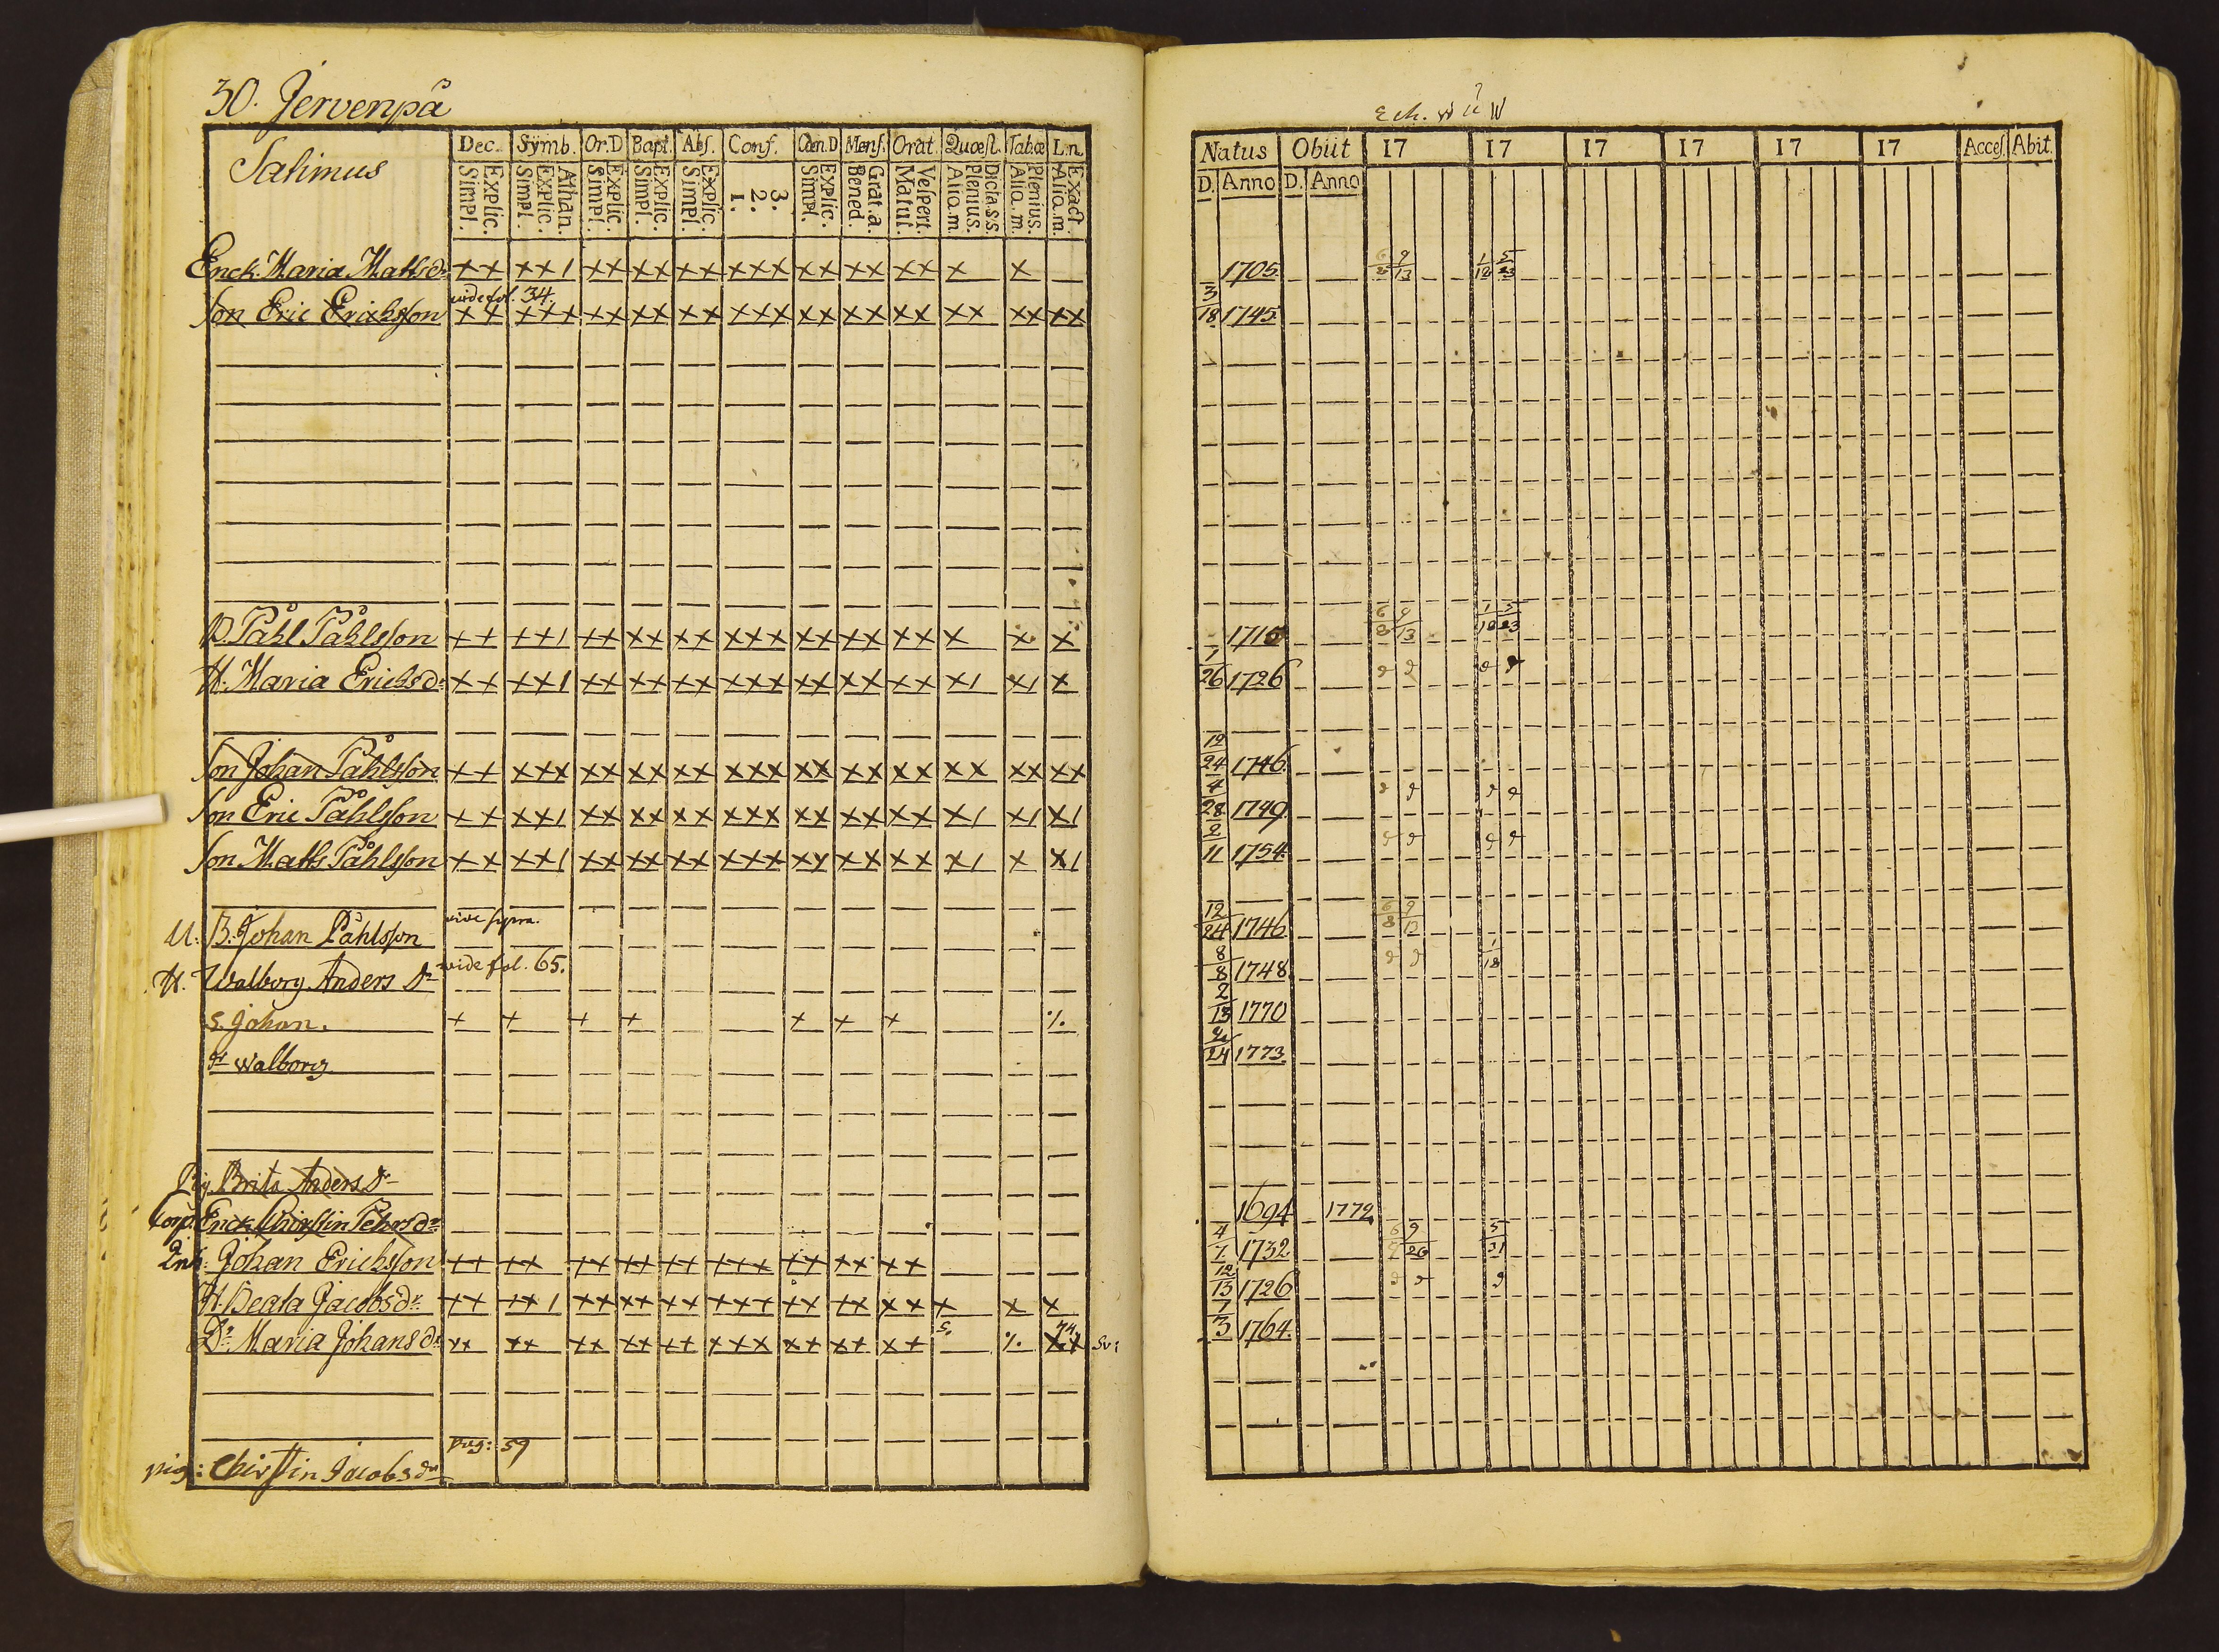 30. Jervenpå
Salimus
Dec. Symb. Or.D Bapt. Abs. Conf. Cœn.D Mens. Orat. Quæst. Tab.œ L.n.
Explic. Simpl. Athan. Explic. Simpl. Explic. Simpl. Explic. Simpl. Explic. Simpl. 3. 2. 1. Explic. Simpl. Grat.a. Bened. Vespert. Matut. Dicta.s.s. Plenius. Aliq.m. Plenius. Aliq.m. Exact. Aliq.m.
Enck. Maria Matts dr ++ ++1 ++ ++ ++ +++ ++ ++ ++ + +
vide fol. 34.
Son Eric Ericksson ++ +++ ++ ++ ++ +++ ++ ++ ++ ++ ++ ++
B. Påhl Påhlsson ++ ++1 ++ ++ ++ +++ ++ ++ ++ + + +
H. Maria Ericks dr ++ ++1 ++ ++ ++ +++ ++ ++ ++ +1 +1 +
Son Johan Påhlsson ++ +++ ++ ++ ++ +++ ++ ++ ++ ++ ++ ++
Son Eric Påhlsson ++ ++1 ++ ++ ++ +++ ++ ++ ++ +1 +1 +1
Son Matts Påhlsson ++ ++1 ++ ++ ++ +++ ++ ++ ++ +1 + +1
U: B. Johan Påhlsson vide supra.
H. Walborg Anders dr vide fol. 65.
S. Johan. + + + + + + + %
dr Walborg
Pig. Brita Anders dr
Enck. Chirstin Pehrs dr
Inh. Johan Ericksson ++ ++ ++ ++ ++ +++ ++ ++ ++
H. Beata Jacobs dr ++ ++1 ++ ++ ++ +++ ++ ++ ++ + + +
Dr. Maria Johans dr ++ ++ ++ ++ ++ +++ ++ ++ ++ % Sv:
pag: 59
pig: Chirstin Jacobs dr
Natus Obiit 17 17 17 17 17 17 Acces. Abit.
D. Anno D. Anno
1705. 6/8 9/13 1/12 5/23
3/18 1745
1715 6/8 9/13 1/12 5/23
7/26 1726
12/24 1746.
4/28 1749.
2/11 1754.
12/24 1746 6/8 9/13
8/8 1748 1/18
2/13 1770
2/24 1773.
1694 1772
4/7 1732 9/26 5/31
12/13 1726
7/3 1764.